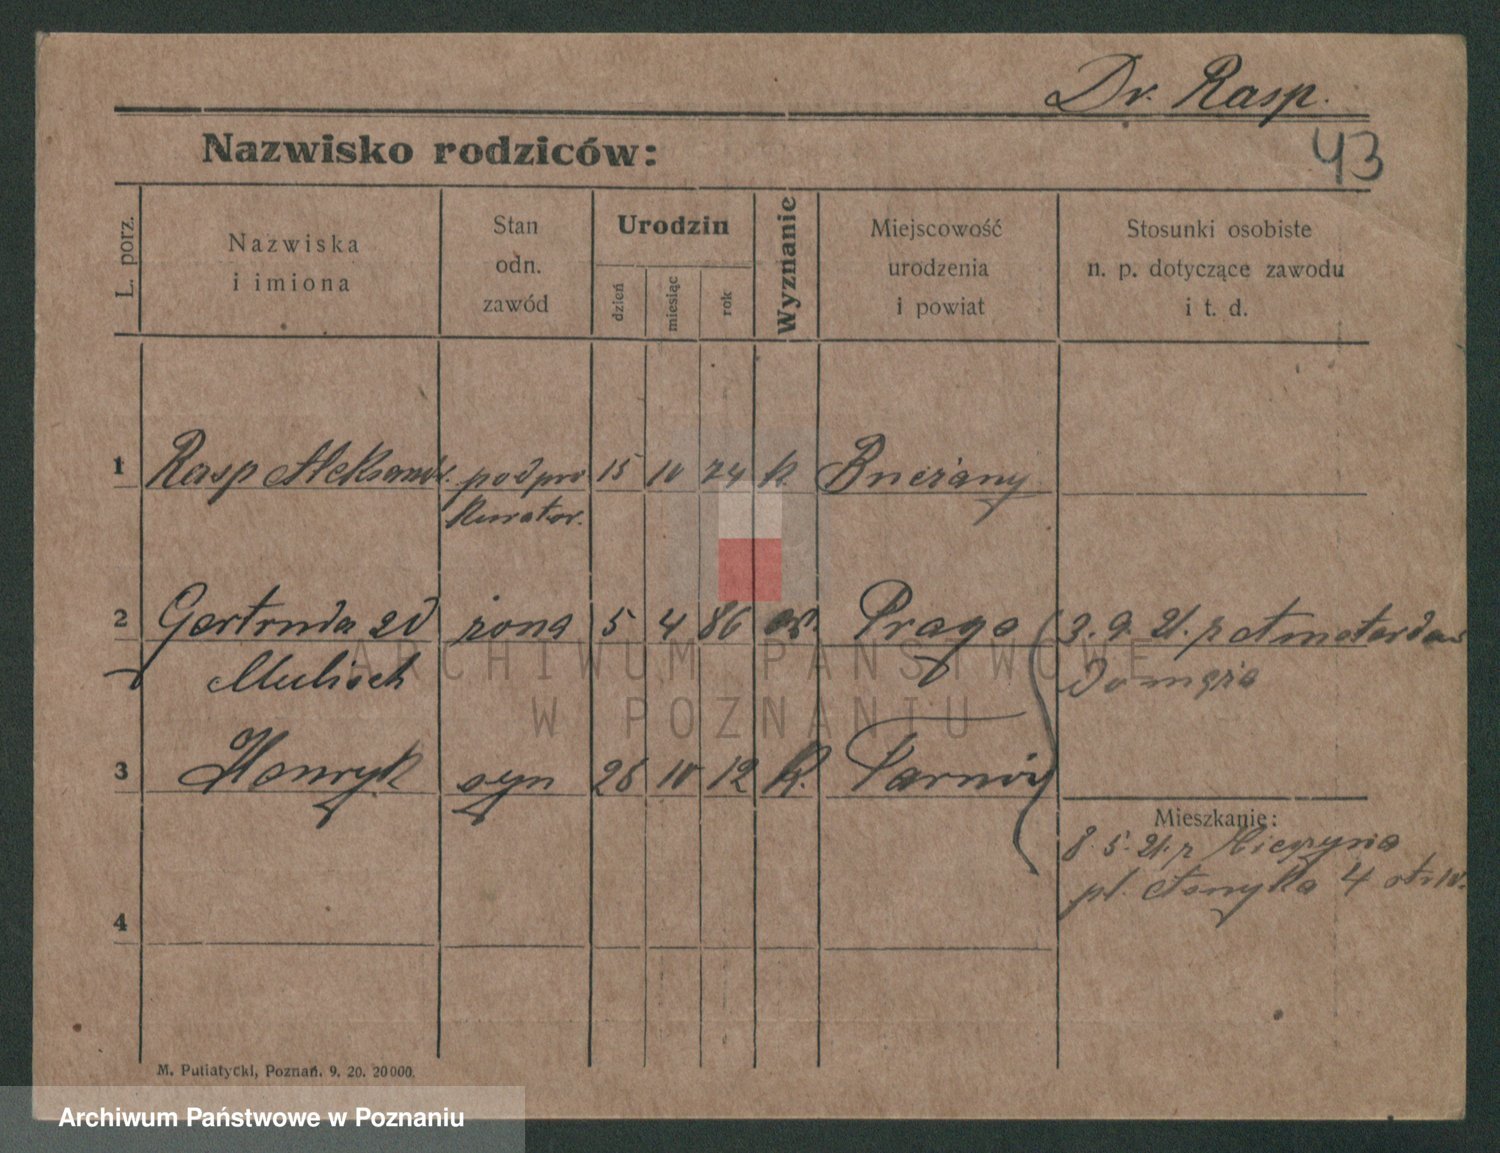 Dr. Rasp.
43
Nazwisko rodziców:
L. porz.
Nazwiska
i imiona
Stan
odn.
zawód
Urodzin
dzień
miesiąc
rok
Wyznanie
Miejscowość
urodzenia
i powiat
Stosunki osobiste
n. p. dotyczące zawodu
i t. d.
1 Rasp Aleksandr. podpro 15 10 74 k
kurator.
2 Gertruda zd żona 5 4 86 Praga 3. 9. 21. z Amsterdam
Do męża
3 Henryk syn 10 12 k. Tarnów
Mieszkanie:
8. 5. 21. z Cieszyna
pl. 4
4
M. Putiatycki, Poznań. 9. 20. 20000.
ARCHIWUM PAŃSTWOWE
W POZNANIU
Archiwum Państwowe w Poznaniu